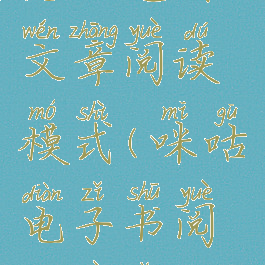 wén zhāng yuè dú
文章阅读
mó shì mī gū
模式(咪咕
diàn zǐ shū yuè
电子书阅